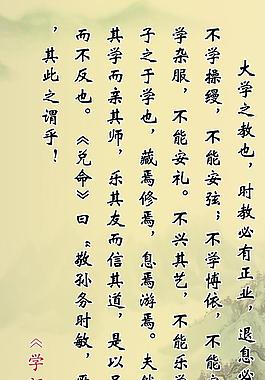 大学之教也，时教必有正业，退息必
不学操缦，不能安弦；不学博依，不能
学杂服，不能安礼。不兴其艺，不能乐学
子之于学也，藏焉修焉，息焉游焉。夫然
其学而亲其师，乐其友而信其道，是以
而不反也。《兑命》曰“敬孙务时敏，
，其此之谓乎！
《学